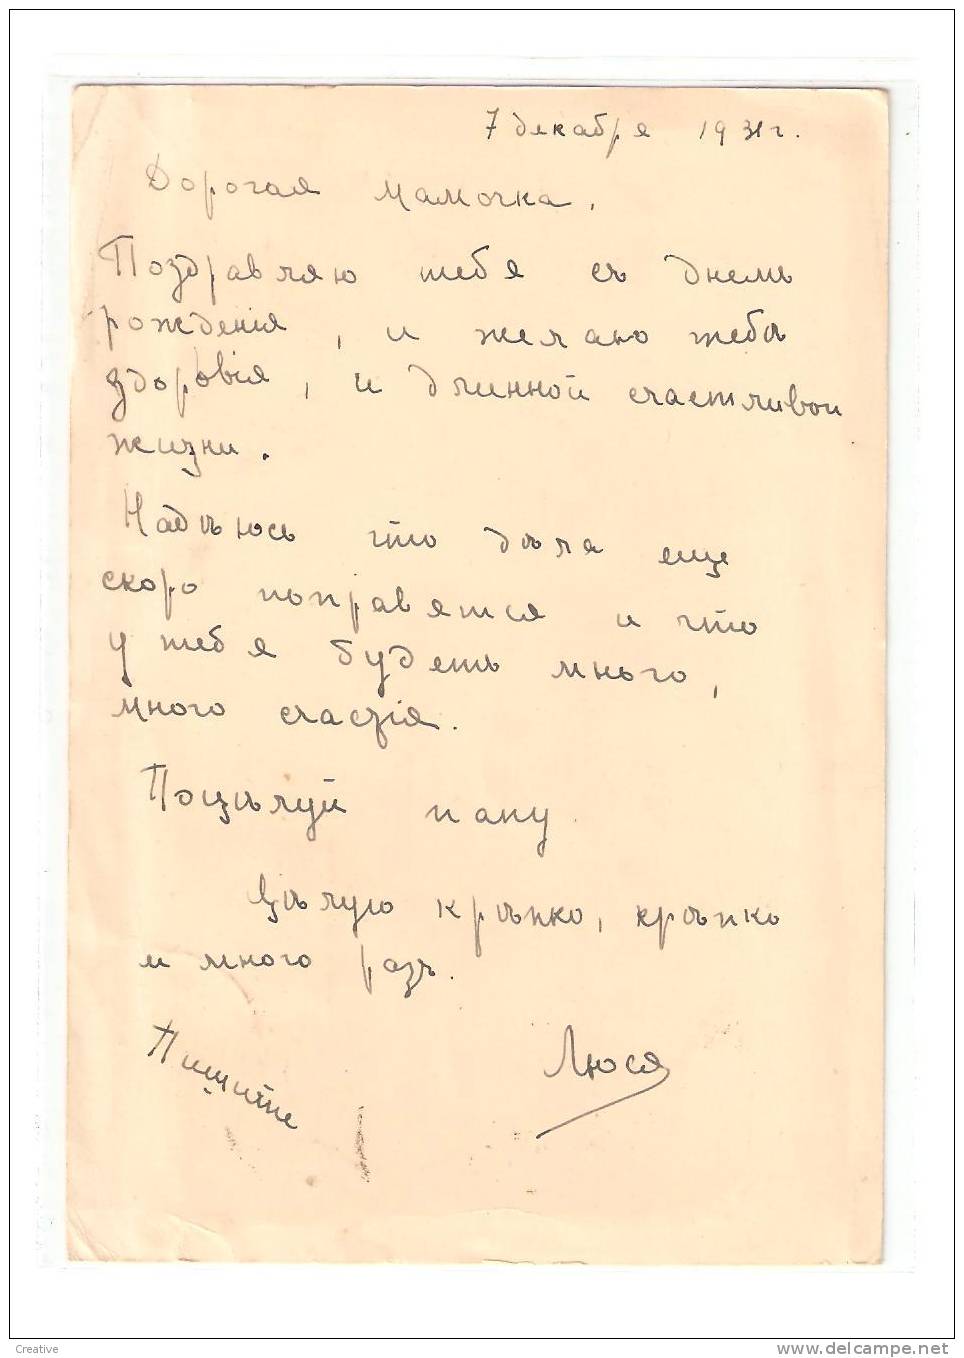 7 декабря 1931г.
Дорогая мамочка.
Поздравляю тебя съ днемъ
рожденія, и желаю тебѣ
здоровія, и длинной счастливой
жизни.
Надѣюсь что дѣла еще
скоро поправятся и что
у тебя будетъ много,
много счастія.
Поцѣлуй папу
Цѣлую крѣпко, крѣпко
и много разъ.
Люся
Пишите
Creative
www.delcampe.net